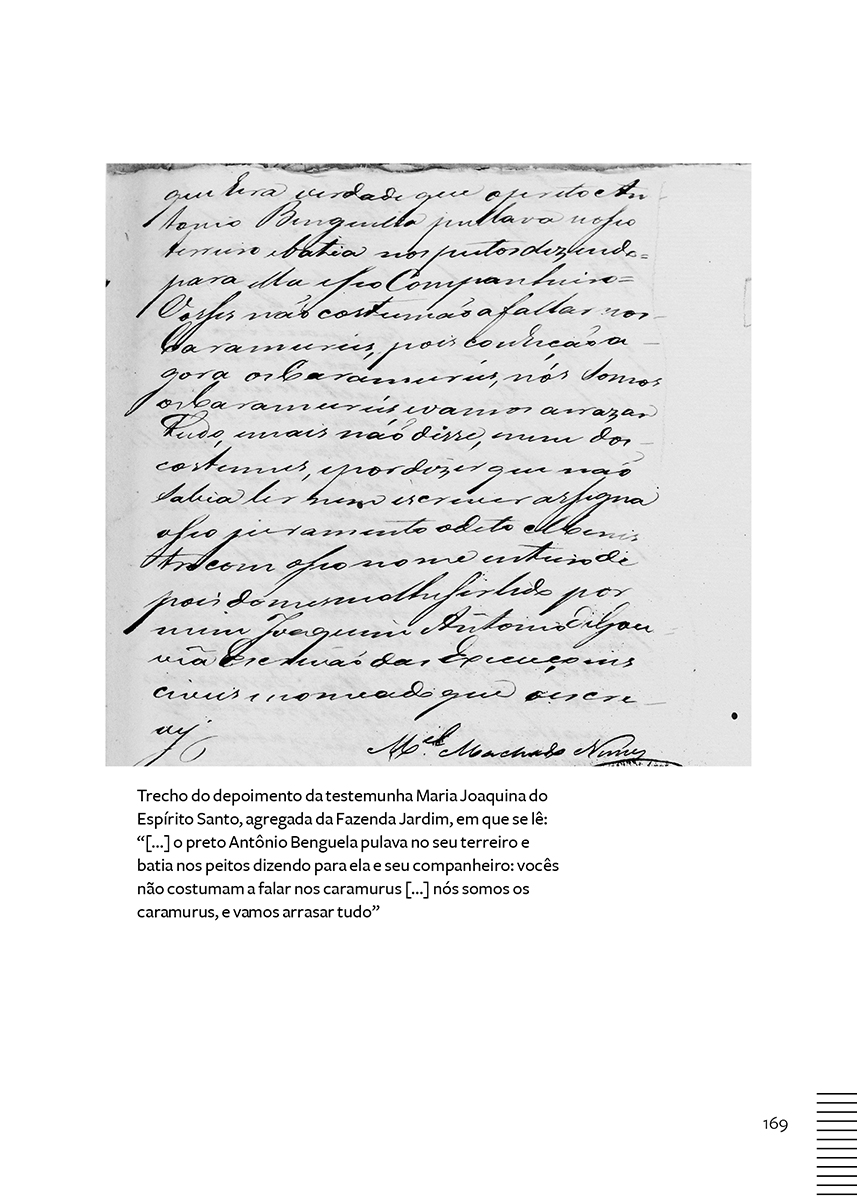 que hera verdade que o preto An-
tonio Benguella pullava no seo
terreiro e batia nos peitos dizendo=
para ella e seo Companheiro=
Vosses não costumão a fallar nos-
Caramurús, pois conheção a-
gora os Caramurús, nós somos
os Caramurús e vamos arrazar
tudo, e mais não disse, nem dos-
costumes, e por dizer que não
sabia ler nem escrever assigna
o seo juramento o dito Menis
tro com o seo nome inteiro de
pois do mesmo lhe ser lido por
mim Joaquim Antonio de Gou
vêa Escrivão das Execuçoins
civeis e nomeado que o escre-
vy.
Mel Machado Nunes
Trecho do depoimento da testemunha Maria Joaquina do
Espírito Santo, agregada da Fazenda Jardim, em que se lê:
“[...] o preto Antônio Benguela pulava no seu terreiro e
batia nos peitos dizendo para ela e seu companheiro: vocês
não costumam a falar nos caramurus [...] nós somos os
caramurus, e vamos arrasar tudo”
169